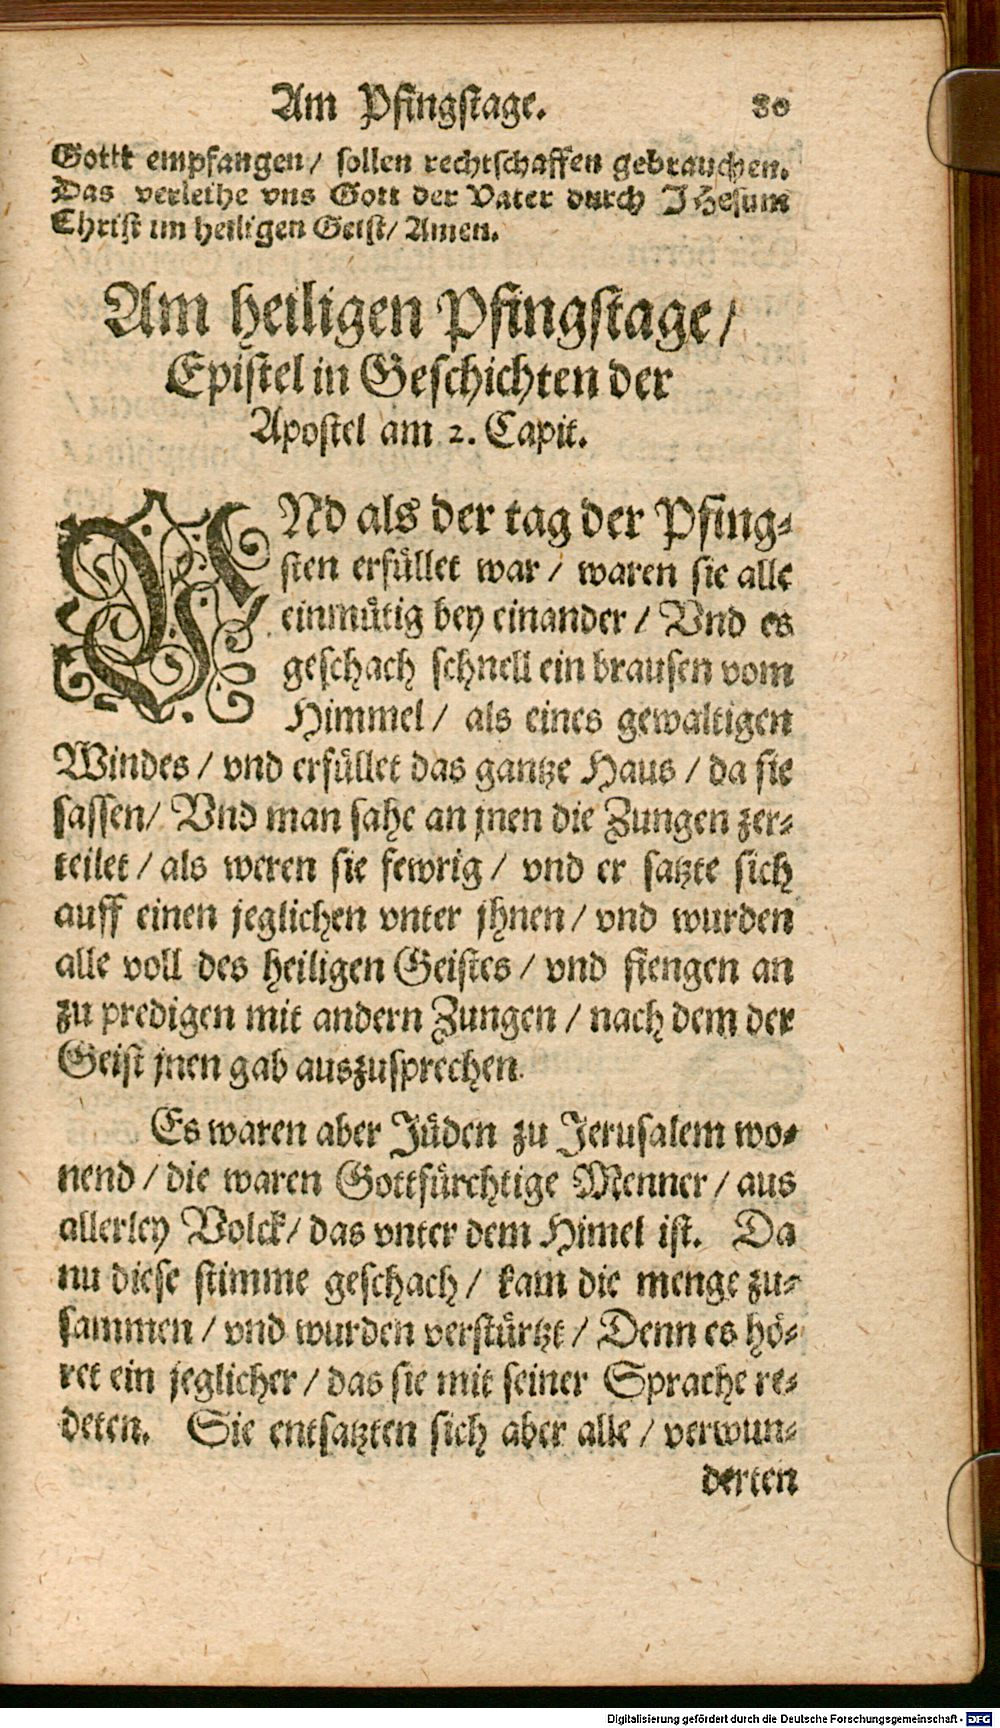 Am Pfingstage. 80
Gottt empfangen/ sollen rechtschaffen gebrauchen.
Das verleihe vns Gott der Vater durch JHesum
Christ im heiligen Geist/ Amen.
Am heiligen Pfingstage/
Epistel in Geschichten der
Apostel am 2. Capit.
VNd als der tag der Pfing-
sten erfüllet war/ waren sie alle
einmütig bey einander/ Vnd es
geschach schnell ein brausen vom
Himmel/ als eines gewaltigen
Windes/ vnd erfüllet das gantze Haus/ da sie
sassen/ Vnd man sahe an jnen die Zungen zer-
teilet/ als weren sie fewrig/ vnd er satzte sich
auff einen jeglichen vnter jhnen/ vnd wurden
alle voll des heiligen Geistes/ vnd fiengen an
zu predigen mit andern Zungen/ nach dem der
Geist jnen gab auszusprechen.
Es waren aber Jüden zu Jerusalem wo-
nend/ die waren Gottfürchtige Menner/ aus
allerley Volck/ das vnter dem Himel ist. Da
nu diese stimme geschach/ kam die menge zu-
sammen/ vnd wurden verstürtzt/ Denn es hö-
ret ein jeglicher/ das sie mit seiner Sprache re-
deten. Sie entsatzten sich aber alle/ verwun-
derten
Digitalisierung gefördert durch die Deutsche Forschungsgemeinschaft - DFG